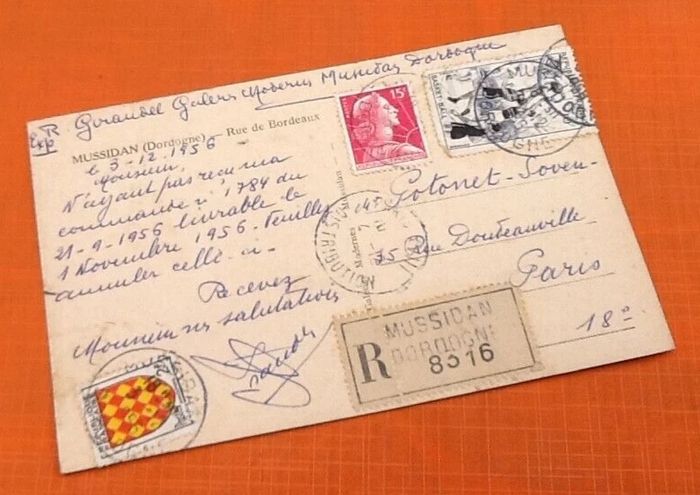 Exp R. Giraudel Galeries Modernes Mussidan Dordogne
MUSSIDAN (Dordogne) – Rue de Bordeaux
le 3-12.1956
Monsieur,
N'ayant pas reçu ma
commande n° 1784 du
21-9-1956 livrable le
1 Novembre 1956 - Veuillez
annuler celle-ci -
Recevez
Monsieur mes salutations
15F
POSTES
BASKET-BALL
Mts Gotonet-Souven-
75 Rue Doudeauville
Paris
18e
Galeries Modernes - Mussidan
R
MUSSIDAN
DORDOGNE
8316